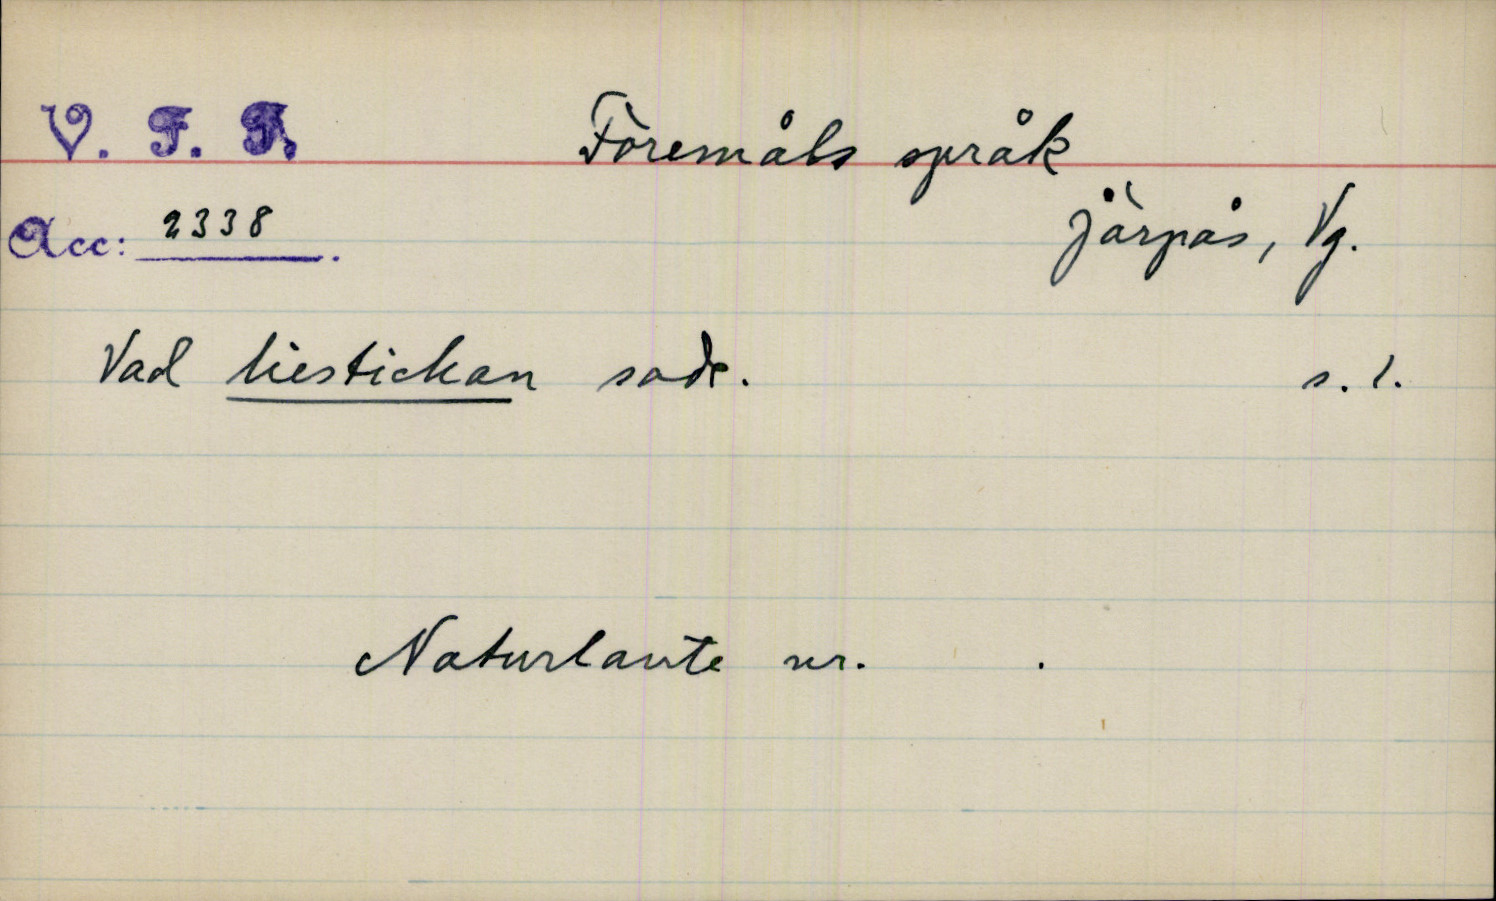 V. F. F.
Föremåls språk
Acc: 2338.
Järpås, Vg.
Vad liestickan sade. s. 1.
Naturlaute nr. .